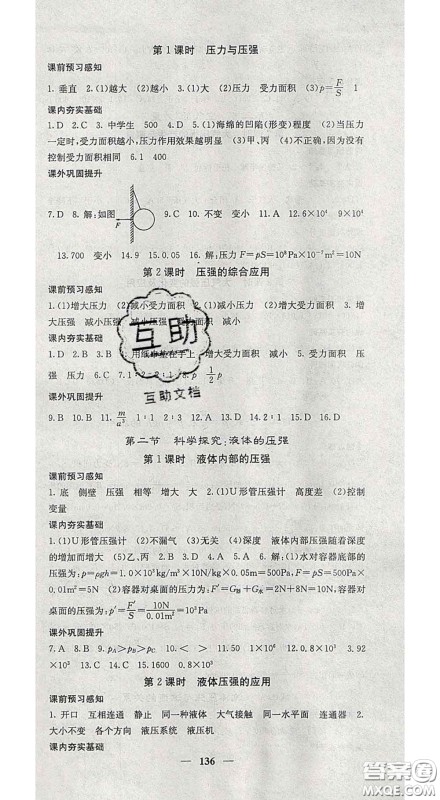 第1课时 压力与压强
课前预习感知
1. 垂直 2.(1)越大 (2)越小 3.(1)大 压力 受力面积 (3)p=F/S 1
课内夯实基础
1.D 2.C 3.中学生 500 4.D 5.(1)海绵的凹陷(形变)程度 (2)当压力
一定时,受力面积越小,压力作用效果越明显 (3)甲、丙 (4)不正确,因为没有
控制受力面积相同 6.1 400
课外巩固提升
7.D 8.解:如图 F 9.C 10.不变 变小 11.A 12.6×10⁴ 9×10⁴
13.700 变小 14.9 15.0.05 16.解:压力F=pS=10⁸Pa×10⁻⁷m²=10N
第2课时 压强的综合应用
课前预习感知
1.(1)增大压力 (2)减小受力面积 2.(1)减小压力 (2)增大受力面积 3.增
大压强 减小压强 减小压强 增大 受力面积 减小
课内夯实基础
1.D 2.B 3.用纸巾垫在手上 增大受力面积 减小 5.受力面积 压
强 压力 D 7.1∶2∶1∶2 8.p 1/2 p
课外巩固提升
9.B 10.B 11.m/a³ 1∶1 2∶3 12.A 13.D 14.D 15.D 16.2∶1
第二节 科学探究:液体的压强
第1课时 液体内部的压强
课前预习感知
1.底 侧壁 压强 相等 增大 大 2.(1)U形管压强计 高度差 (2)控制
变量
课内夯实基础
1.(1)U形管压强计 (2)不漏气 (3)无关 (4)深度 液体内部压强随着深度
的增加而增大 (5)乙、丙 2.B 3.D 4.D 5.A 6.解:(1)水对容器底部的
压强为:p=ρgh=1.0×10³kg/m³×10N/kg×0.05m=500Pa,F=pS=500Pa×
0.01m²=5N (2)容器对桌面的压力为:F′=G容+G水=2N+8N=10N,容器对
桌面的压强为:p′=F′/S=10N/0.01m²=10³Pa
课外巩固提升
7.A 8.B 9.pA>pB>pC 10.< > 11.0.8×10³ 12.C 13.3.92
×10³ 14.C 15.1600 0.8×10³
第2课时 液体压强的应用
课前预习感知
1.开口 互相连通 静止 同一种液体 大气接触 同一水平面 连通器 2.
大小不变 各个方向 液压系统 液压机
课内夯实基础
136
互助
互助文档
答案圈
MXQE.COM